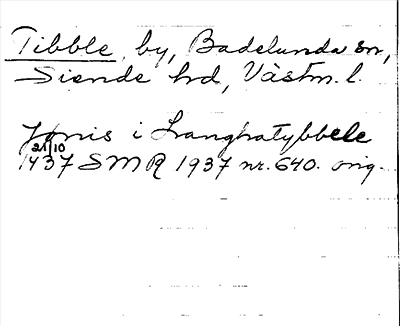 Tibble, by, Badelunda sn,
Siende hd, Västm. l.
Jönis i Langhatybbele
21/10
1437 SMR 1937 nr. 640. orig.